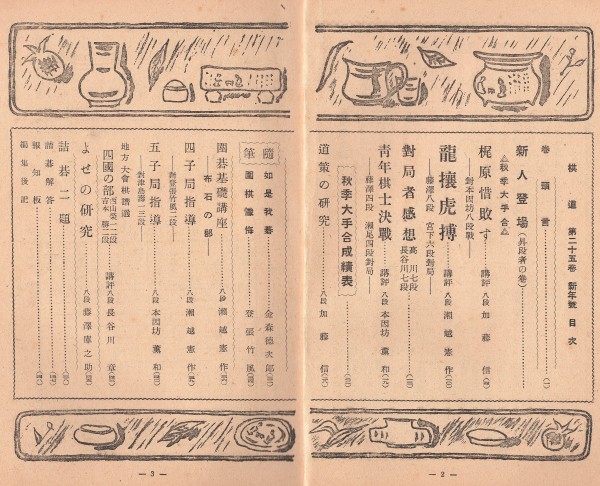 棋道 第二十五卷 新年號 目次
卷頭言
新人登場(昇段者の卷)
△秋季大手合△
梶原惜敗す 講評 八段 加藤信
對本因坊八段戰
龍攘虎搏 講評 八段 瀬越憲作
藤澤八段 宮下六段對局
對局者感想 高川七段 長谷川七段
靑年棋士決戰 講評 八段 本因坊薰和
藤澤四段 瀬尾四段對局
秋季大手合成績表
道策の硏究 八段 加藤信
隨筆
如是我碁 金森德次郎
圍棋懺悔 登張竹風
圍碁基礎講座 八段 瀬越憲作
布石の部
四子局指導 八段 瀬越憲作
對登張竹風二段
五子局指導 八段 本因坊薰和
對津島壽一三段
地方大會棋譜選
四國の部 講評 八段 長谷川章
よせの硏究 八段 藤澤庫之助
詰碁二題
詰碁解答
報知板
編集後記
— 3 —
— 2 —